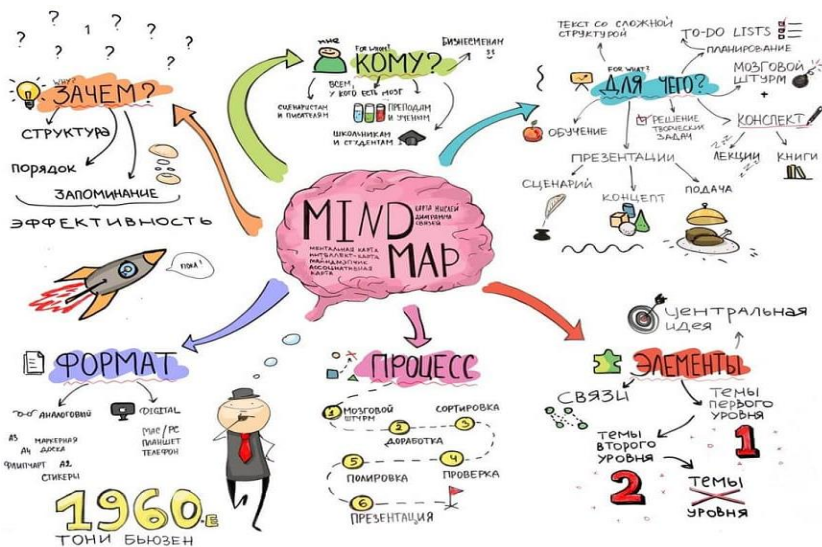 WHY?
ЗАЧЕМ?
СТРУКТУРА
ПОРЯДОК
ЗАПОМИНАНИЕ
ЭФФЕКТИВНОСТЬ
ПОКА!
МНЕ
FOR WHOM?
КОМУ?
БИЗНЕСМЕНАМ
ВСЕМ,
У КОГО ЕСТЬ МОЗГ
СЦЕНАРИСТАМ
И ПИСАТЕЛЯМ
ПРЕПОДАМ
И УЧЕНЫМ
ШКОЛЬНИКАМ
И СТУДЕНТАМ
FOR WHAT?
ДЛЯ ЧЕГО?
ТЕКСТ СО СЛОЖНОЙ
СТРУКТУРОЙ
TO-DO LISTS
ПЛАНИРОВАНИЕ
МОЗГОВОЙ
ШТУРМ
+
КОНСПЕКТ
ЛЕКЦИИ
КНИГИ
ОБУЧЕНИЕ
РЕШЕНИЕ
ТВОРЧЕСКИХ
ЗАДАЧ
ПРЕЗЕНТАЦИИ
СЦЕНАРИЙ
КОНЦЕПТ
ПОДАЧА
MIND
MAP
КАРТА МЫСЛЕЙ
ДИАГРАММА
СВЯЗЕЙ
МЕНТАЛЬНАЯ КАРТА
ИНТЕЛЛЕКТ-КАРТА
МАЙНДМЭПЧИК
АССОЦИАТИВНАЯ
КАРТА
ФОРМАТ
АНАЛОГОВЫЙ
DIGITAL
А3
МАРКЕРНАЯ
ДОСКА
А4
ФЛИПЧАРТ
А2
СТИКЕРЫ
MAC/PC
ПЛАНШЕТ
ТЕЛЕФОН
1960.Е
ТОНИ БЬЮЗЕН
ПРОЦЕСС
1 МОЗГОВОЙ
ШТУРМ
2
ДОРАБОТКА
СОРТИРОВКА
3
4
ПРОВЕРКА
5
ПОЛИРОВКА
6
ПРЕЗЕНТАЦИЯ
ЭЛЕМЕНТЫ
ЦЕНТРАЛЬНАЯ
ИДЕЯ
СВЯЗИ
ТЕМЫ
ПЕРВОГО
УРОВНЯ
1
ТЕМЫ
ВТОРОГО
УРОВНЯ
2
ТЕМЫ
УРОВНЯ